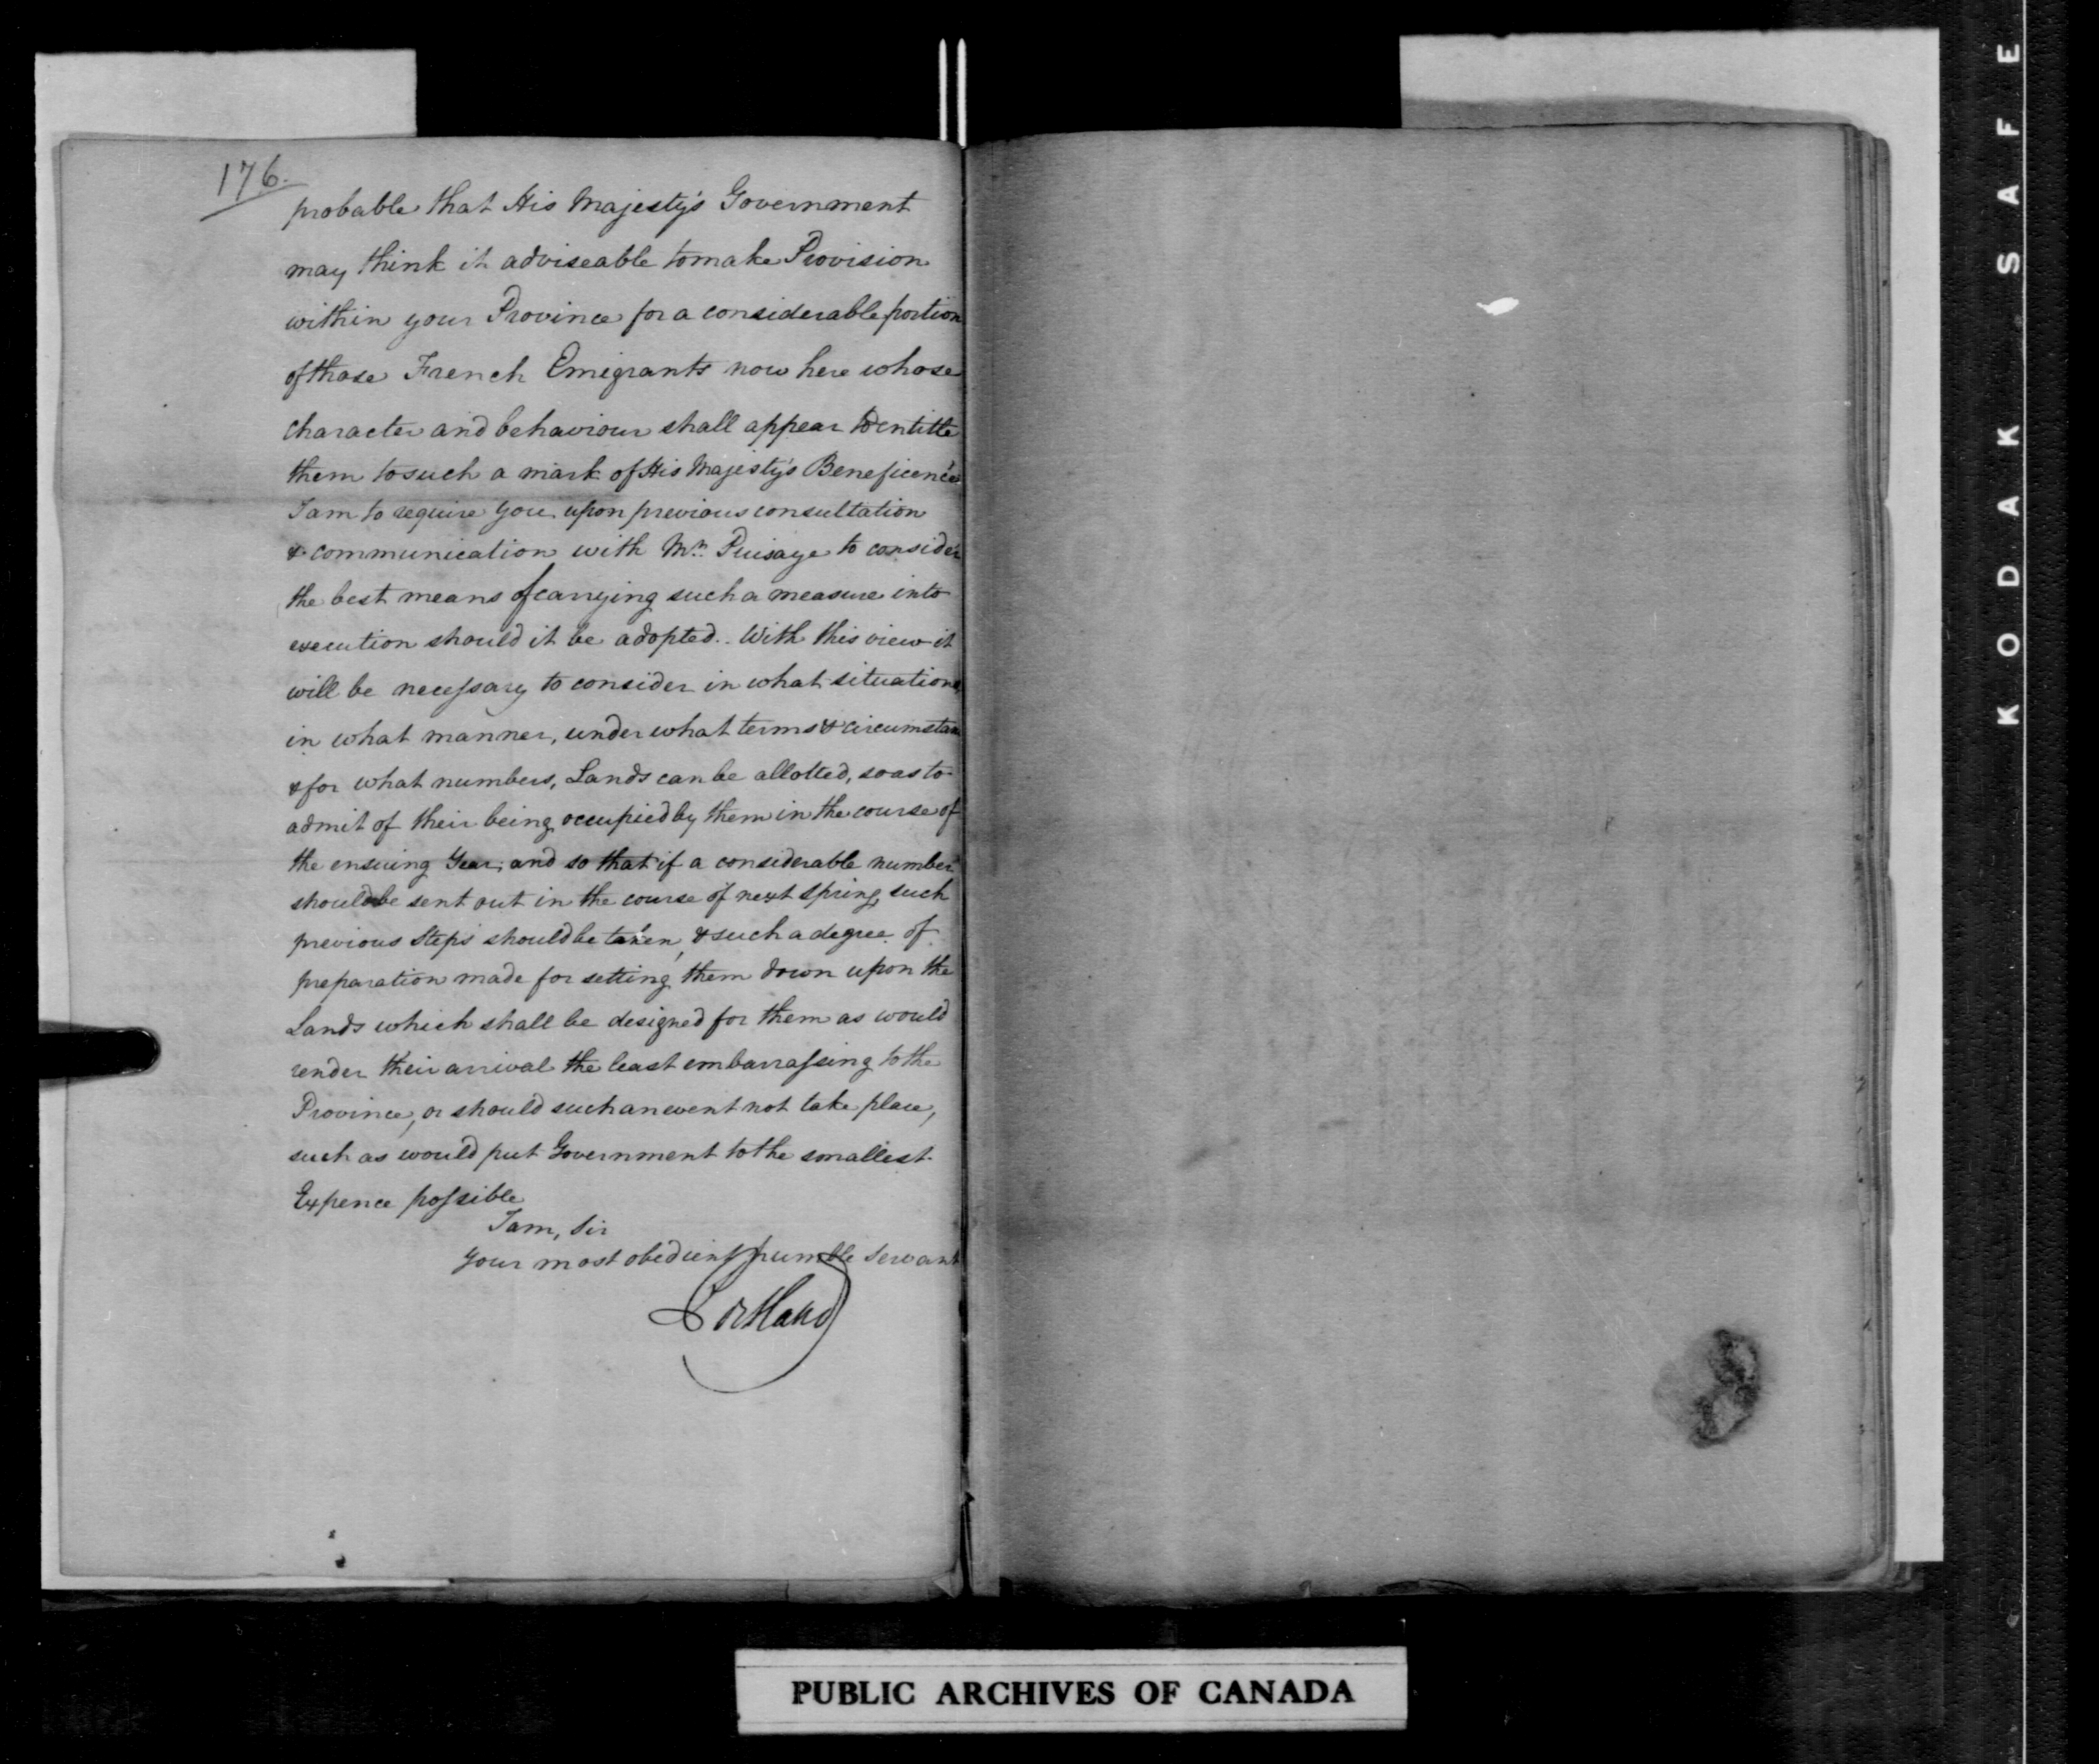 176.
probable that His Majesty's Government
may think it adviseable to make Provision
within your Province for a considerable portion
of those French Emigrants now here whose
character and behaviour shall appear to entitle
them to such a mark of His Majesty's Beneficence
I am to require you upon previous consultation
& communication with Mr. Puisaye to consider
the best means of carrying such a measure into
execution should it be adopted. With this view it
will be necessary to consider in what situations,
in what manner, under what terms & circumstan
& for what numbers, Lands can be allotted, so as to
admit of their being occupied by them in the course of
the ensuing Year, and so that if a considerable number
should be sent out in the course of next spring, such
previous Steps should be taken, & such a degree of
preparation made for setting them down upon the
Lands which shall be designed for them as would
render their arrival the least embarrassing to the
Province, or should such an event not take place,
such as would put Government to the smallest
Expence possible
I am, Sir
Your most obedient humble Servant
Portland
KODAK SAFE
PUBLIC ARCHIVES OF CANADA